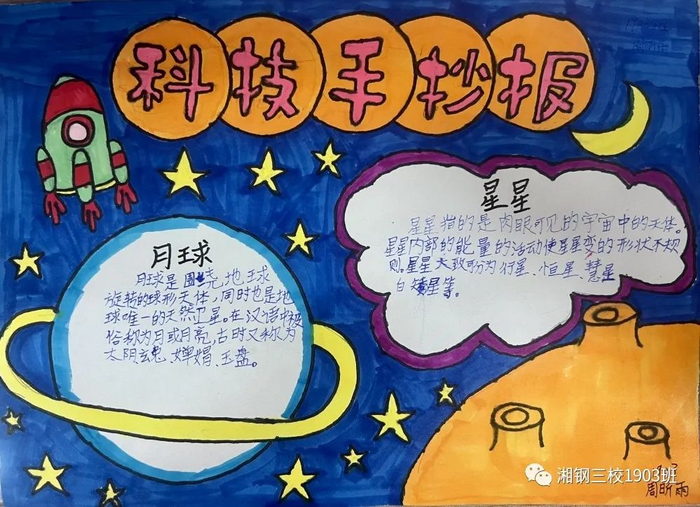 科技手抄报
星星
星星指的是肉眼可见的宇宙中的天体。
星星内部的能量的活动使星星变的形状不规
则。星星大致可分为行星、恒星、彗星
白矮星等。
月球
月球是围绕地球
旋转的球形天体,同时也是地
球唯一的天然卫星。在汉语中被
俗称为月或月亮,古时又称为
太阴、玄兔、婵娟、玉盘。
湘钢三校1903班
周昕雨